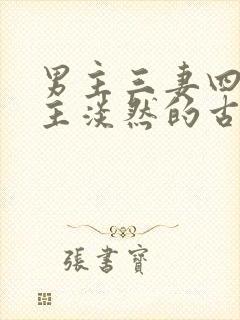 男主三妻四
主淡然的古
張書寶